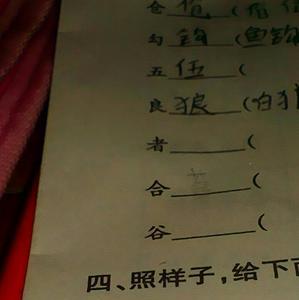 仓 伧 (
勾 钩 (鱼钩
五 伍 (
良 狼 (白狼
者 (
合 (
谷 (
四、照样子,给下